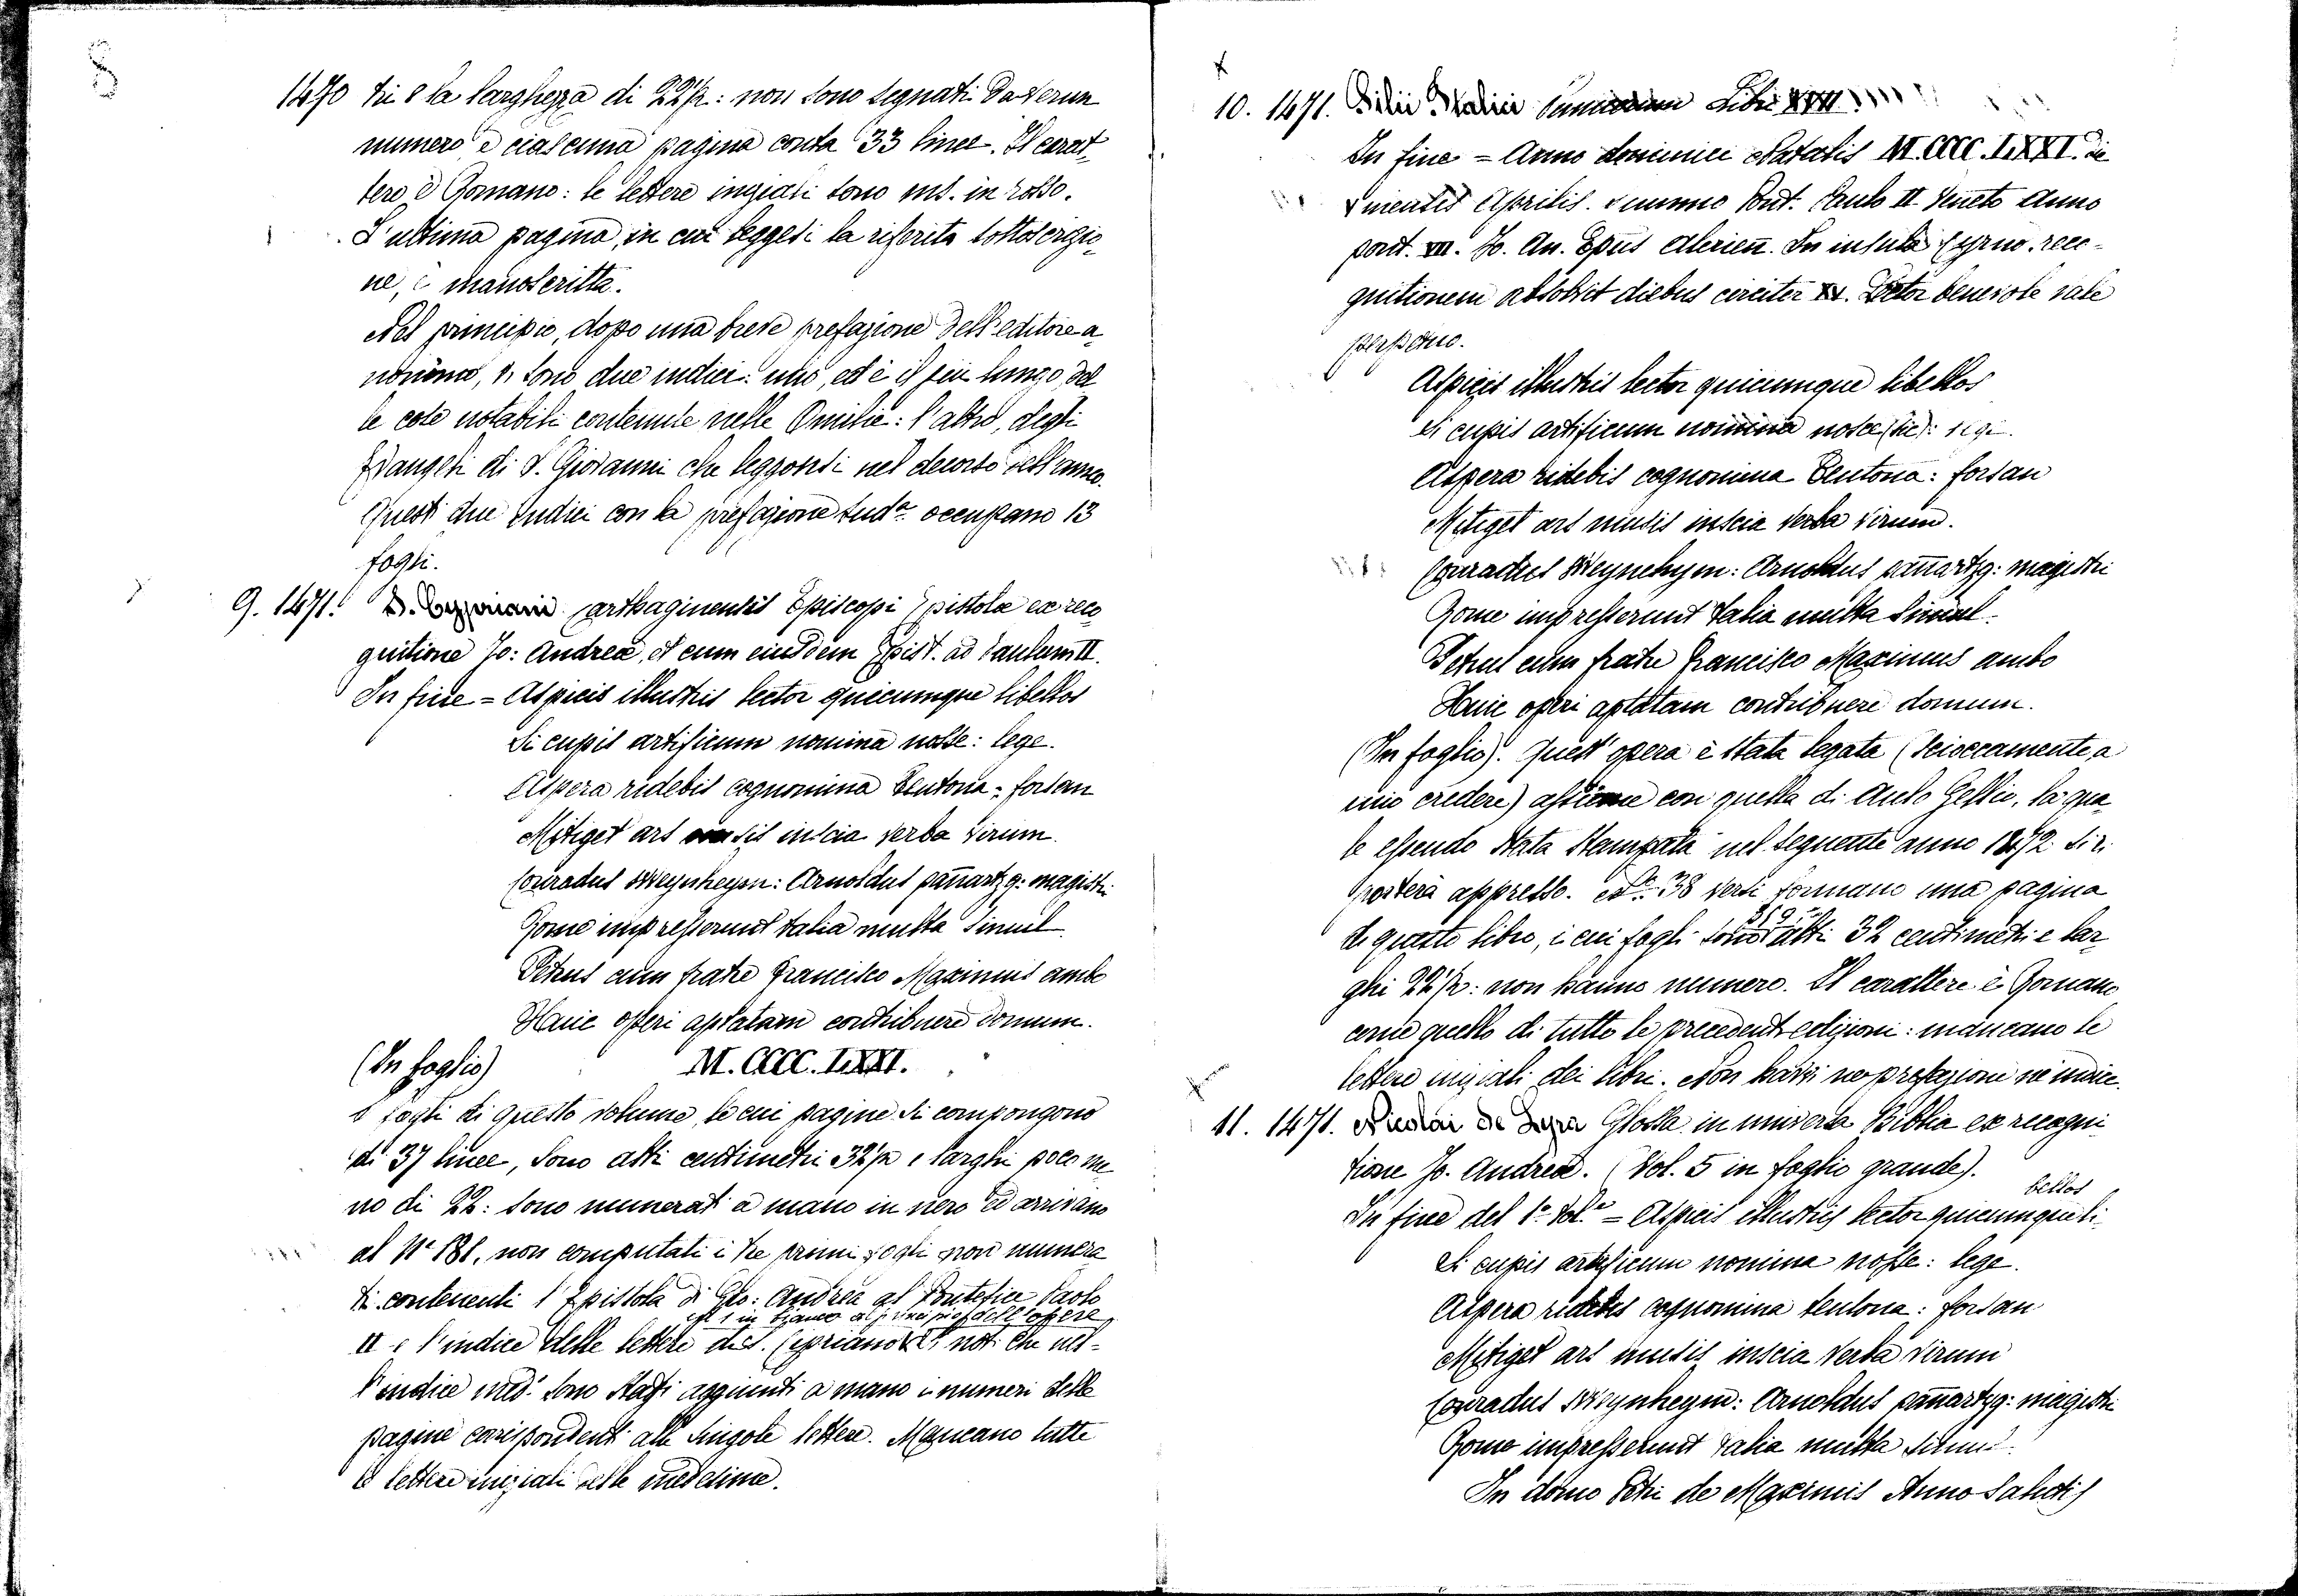 8
1470 tri e la larghezza di 22 1/2: non sono segnati da verun
numero e ciascuna pagina conta 33 linee. Il carat-
tere è Romano: le lettere inziali sono ms. in rosso.
L'ultima pagina, in cui leggesi la riferita sottoscrizio-
ne, è manoscritta.
Nel principio, dopo una breve prefazione dell'editore a-
nonimo, vi sono due indici: uno, ed è il più lungo, del
le cose notabili contenute nelle Omilie: l'altro, degli
Evangeli di S. Giovanni che leggonsi nel decorso dell'anno.
Questi due indici con la prefazione sud.a occupano 13
fogli.
9. 1471. S. Cypriani Carthaginensis Episcopi Epistolæ ex reco-
gnitione Jo: Andreæ, et cum eiusdem Epist. ad Paulum II.
In fine = Aspicis illustris lector quicumque libellos
Si cupis artificum nomina nosse: lege.
Aspera ridebis cognomina Teutona: forsan
Mitiget ars musis inscia verba virum.
Conradus Sweynheym: Arnoldus pañartzq: magistri
Rome impresserunt talia multa simul.
Petrus cum fratre Francisco Maximus ambo
Huic operi aptatam contribuere domum.
(In foglio) M. CCCC. LXXI.
I fogli di questo volume, le cui pagine si compongono
di 37 linee, sono alti centimetri 32 1/2 e larghi poco me-
no di 22: sono numerati a mano in nero ed arrivano
al N° 181, non computati i tre primi fogli non numera-
ti contenenti l'Epistola di Gio: Andrea al Pontefice Paolo
ed 1 in bianco al principio dell'opere
II e l'indice delle lettere di S. Cipriano. Si noti che nel-
l'indice med.° sono stati aggiunti a mano i numeri delle
pagine corrispondenti alle singole lettere. Mancano tutte
le lettere iniziali delle medesime.
10. 1471. Silii Italici Punicorum Libri XVII.
In fine = Anno dominici Natalis M.CCCC.LXXI. die
V mensis Aprilis. summo Pont. Paulo II Veneto Anno
pont. VII. Jo. An. Epus Alerien. In insula Cyrno. reco-
gnitionem absolvit diebus circiter XV. Lector benevole vale
perpetuo.
Aspicis illustris lector quicumque libellos
Si cupis artificum nomina nosce (sic): lege.
Aspera ridebis cognomina Teutona: forsan
Mitiget ars musis inscia verba virum.
Conradus Sweynehym: Arnoldus pañartzq: magistri
Rome impresserunt talia multa simul.
Petrus cum fratre Francisco Maximus ambo
Huic operi aptatam contribuere domum.
(In foglio). Quest'opera è stata legata (scioccamente, a
mio credere) assieme con quella di Aulo Gellio, la qua-
le essendo stata stampata nel seguente anno 1472 si ri-
porterà appresso. N.° 38 versi formano una pagina
di questo libro, i cui fogli sono alti 32 centimetri e lar-
ghi 22 1/2: non hanno numero. Il carattere è Romano
come quello di tutte le precedenti edizioni: mancano le
lettere iniziali dei libri. Non havvi ne prefazione ne indice.
11. 1471. Nicolai de Lyra Glossa in universa Biblia ex recogni-
tione Jo. Andreæ. (Vol. 5 in foglio grande).
bellos
In fine del 1.° Vol.e = Aspicis illustris lector quicumque li-
Si cupis artificum nomina nosse: lege.
Aspera ridebis cognomina teutona: forsan
Mitiget ars musis inscia verba virum
Conradus Sweynheym: Arnoldus pañartzq: magistri
Rome impresserunt talia multa simul.
In domo Petri de Maximis Anno Salutis